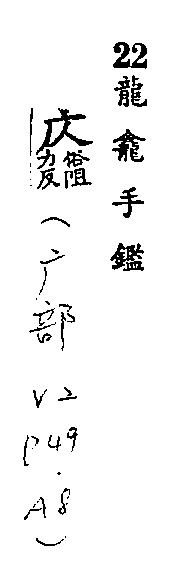 22龍龕手鑑
庂
俗阻
力反
(广部 V2 P49.A8)